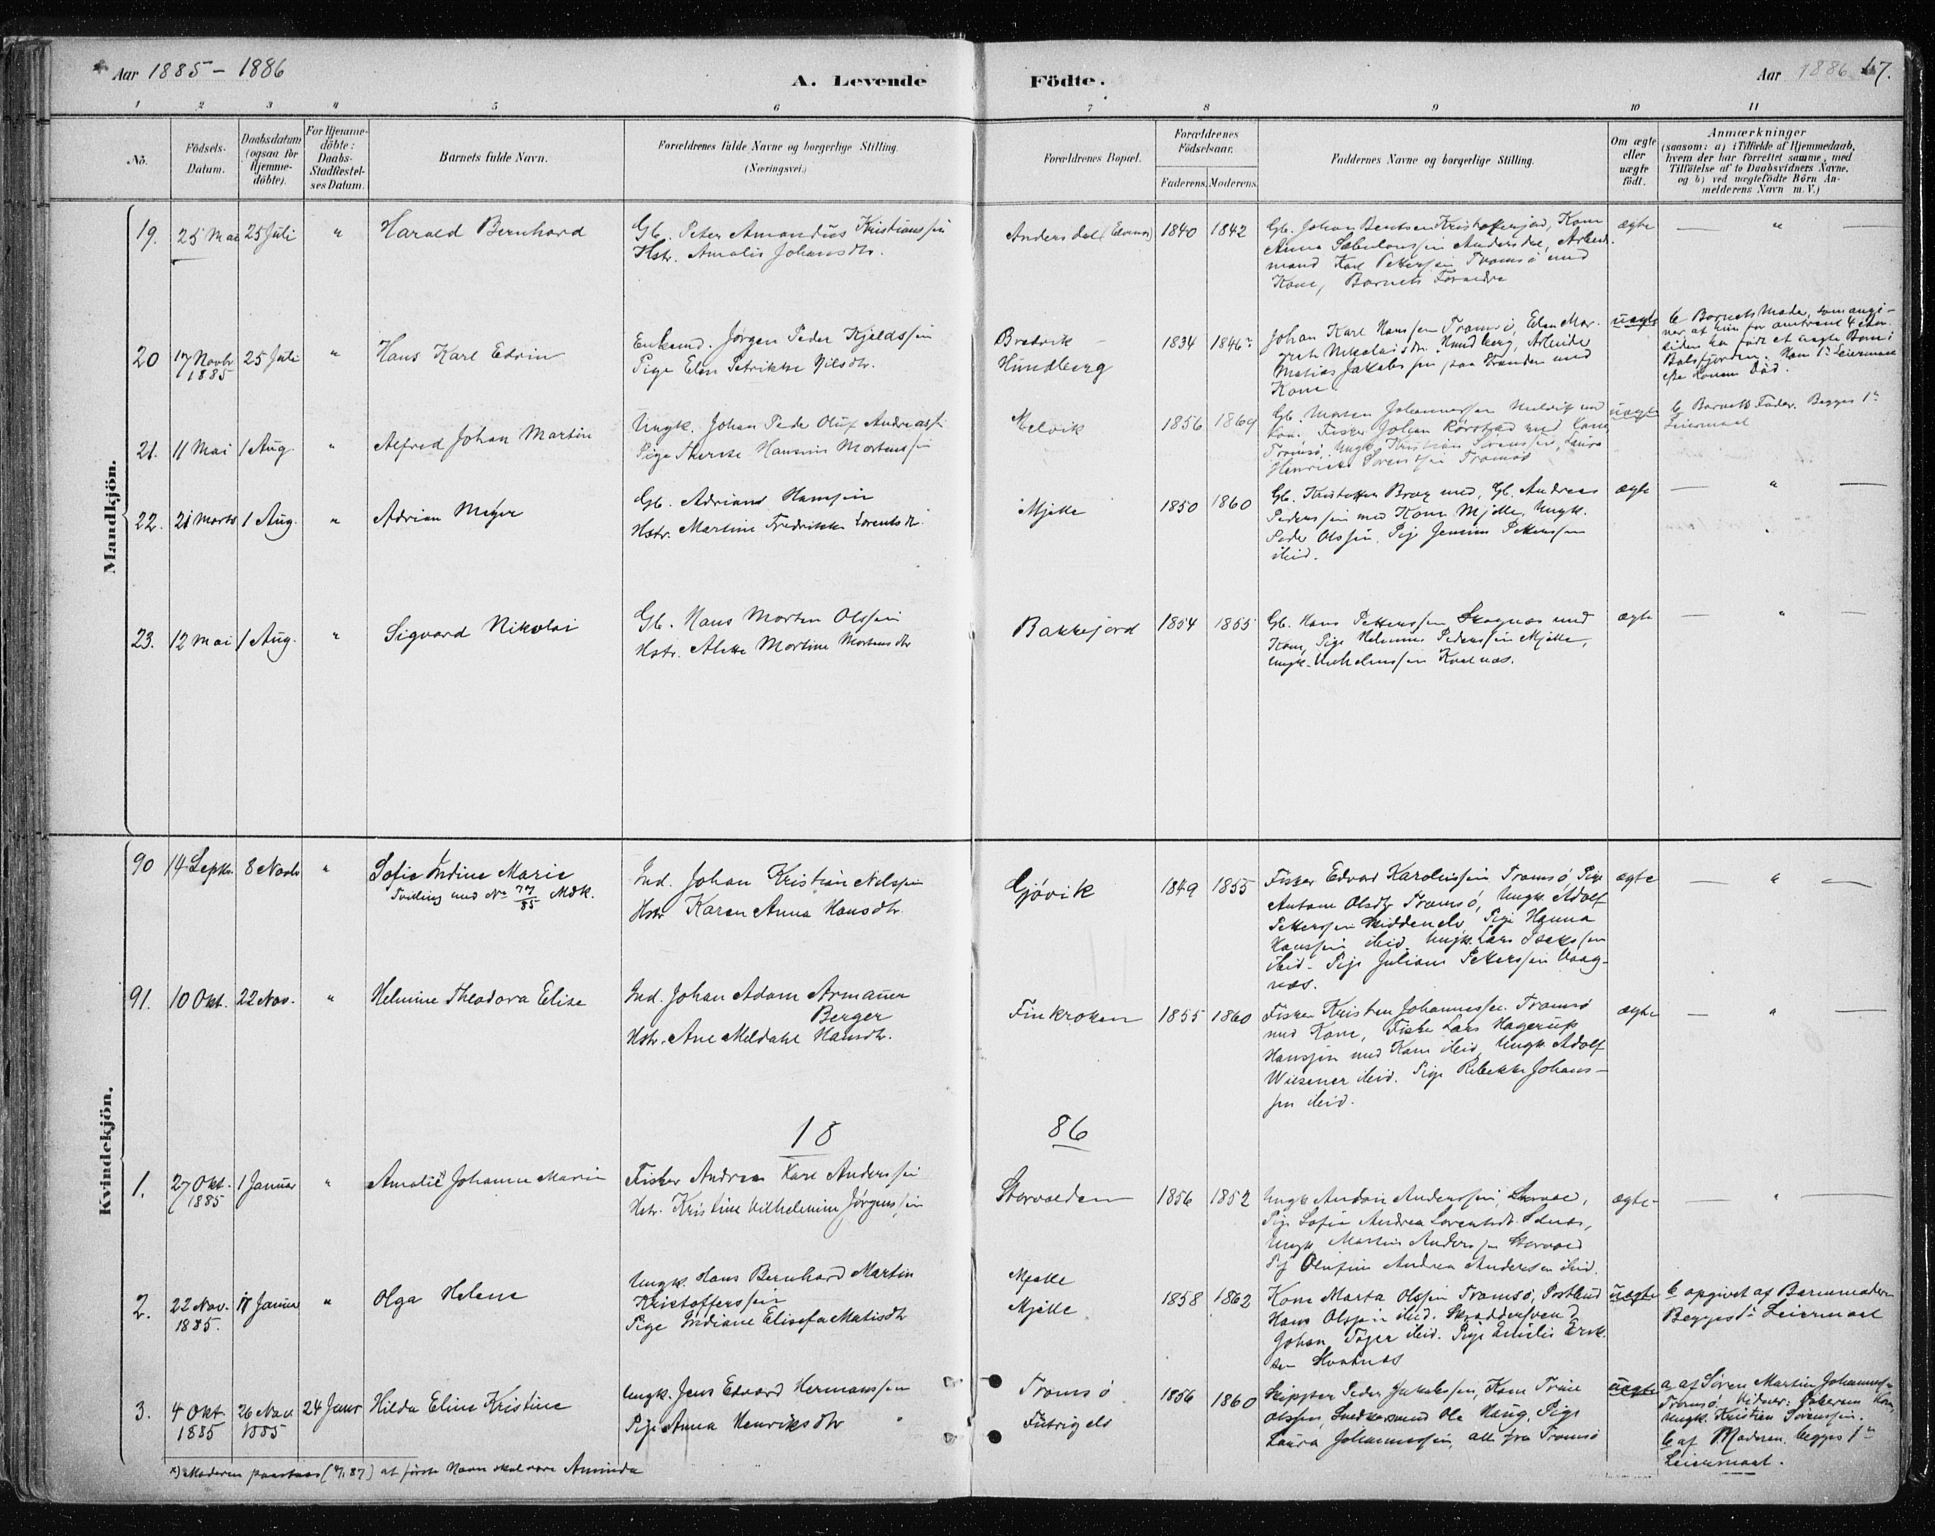 Aar 1885 - 1886
A. Levende Födte.
Aar 1886 17.
1 2 3 4 5 6 7 8 9 10 11
Nö.
Födsels-Datum.
Daabsdatum (ogsaa for Hjemme-döbte).
For Hjemme-döbte: Daabs-Stadfæstel-ses Datum.
Barnets fulde Navn.
Forældrenes fulde Navne og borgerlige Stilling. (Næringsvei.)
Forældrenes Bopæl.
Forældrenes Födselsaar.
Faderens. Moderens.
Faddernes Navne og borgerlige Stilling.
Om ægte eller uægte födt.
Anmærkninger
(saasom: a) i Tilfælde af Hjemmedaab,
hvem der har forrettet samme, med
Tilföielse af to Daabsvidners Navne,
og b) ved uægtefödte Börn An-
melderens Navn m. V.)
Mandkjön.
19. 25 Mai 25 Juli " Harald Bernhard
Gb. Peter Amandus Kristianssen
Hstr. Amalie Johansdtr.
Andersdal 1840 1842
Gb. Johan Bentsen Kristoffersjod, Kone
Anna Andersdal, Arbeids-
mand Karl Pettersen Tromsø med
Kone, Barnets Forældre
ægte — " —
20 17 Novbr 1885 25 Juli " Hans Karl Edvin
Enkemd. Jørgen Peder Kjeldssen
Pige Elen Petrikke Nilsdtr.
Bredvik
Hundberg
1834 1846
Johan Karl Hanssen Tromsø, Elen Mar-
grete Nikolaisdtr. Hundberg, Arbeider
Matias Jakobssen paa Stranden med
Kone.
uægte
b Barnets Moder, som angi-
ver, at hun for omtrent 4 Aar
siden har født et uægte Barn i
Balsfjorden. Hans 1ste Leiermaal
efter Konens Død.
21. 11 Mai 1 Aug. " Alfred Johan Martin
Ungk. Johan Peder Oluf Andreass.
Pige Therese Hansine Mortenssen
Melvik 1856 1864
Gb. Morten Johannessen Melvik med
Kone. Fisker Johan Rørstad med Kone
Tromsø. Ungk. Kristian Sørenssen, Laura
Henrikke Sørenssen Tromsø
uægte
b Barnets Fader. Begges 1ste
Leiermaal
22. 21 Marts 1 Aug. " Adrian Meyer
Gb. Adrian Hansen
Hstr. Martine Fredrikke Lorentsdtr.
Mjelle 1850 1860
Gb. Kristoffer Brox med, Gb. Andreas
Pederssen med Kone Mjelle, Ungk.
Peder Olssen, Pige Jensine Pettersen
ibid.
ægte — " —
"
23. 12 Mai 1 Aug. " Sigvard Nikolai
Gb. Hans Morten Olssen
Hstr. Alette Martine Mortensdtr
Bakkejord 1854 1855
Gb. Hans Petterssen Skognæs med
Kone, Pige Helmine Pederssen Mjelle,
Ungk. Vilhelmssen Kvalnæs.
ægte — " —
Kvindekjön.
90 14 Septbr. 8 Novb " Sofie Indine Marie
Tvilling med No 77/85 Mdk.
Ind. Johan Kristian Nilssen
Hstr. Karen Anna Hansdtr.
Gjøvik 1849 1855
Fisker Edvard Karolinssen Tromsø, Pige
Antone Olsdtr Tromsø, Ungk. Adolf
Petterssen Skiddenelv, Pige Hanna
Hanssen ibid, Ungk. Lars Isakssen
ibid. Pige Juliane Petterssen Vaag-
næs.
ægte — " —
91. 10 Okt. 22 Nov. " Helmine Theodora Elise
Ind. Johan Adam Armauer
Berger
Hstr. Ane Meldahl Hansdtr.
Finkroken 1855 1860
Fisker Kristen Johannessen Tromsø
med Kone, Fisker Lars Hagerup
Hanssen med Kone ibid, Ungk Adolf
Wiesener ibid. Pige Rebekka Johans-
sen ibid.
ægte — " —
18 86
1. 27 Okt. 1885 1 Januar " Amalie Johanne Marie
Fisker Andreas Karl Anderssen
Hstr. Kristine Vilhelmine Jørgenssen
Storvolden 1856 1852
Ungk. Andor Anderssen, Storvold,
Pige Sofie Andrea Lorentsdtr.
Ungk. Martin Anderssen Storvold
Pige Olufine Andrea Andersen ibid.
ægte — " —
2. 22 Nov. 1885. 17 Januar " Olga Helene
Ungk. Hans Bernhard Martin
Kristofferssen
Pige Indiane Elisefa Matisdtr
Mjelle
Mjelle
1858 1862
Kone Marta Olssen Tromsø, Postbud
Hans Olssen ibid. Skræddersvend
Johan Føyer ibid. Pige Emilie Erik-
sen
uægte
b opgivet af Barnemoderen
Begges 1ste Leiermaal
3. 4 Okt. 1885 26 Nov. 1885 24 Janr Hilda Eline Kristine
Ungk. Jens Edvard Hermanssen
Pige Anna Henriksdtr "
Tromsø
Futrigels
1856 1860
Skipper Peder Jakobssen, Kone Trine
Olssen, Snedkersvend Ole Haug, Pige
Laura Johannessen, alle fra Tromsø
uægte
a af Søren Martin Johannes-
Tromsø. Vidner: Kone,
Ungk. Kristian Sørenssen.
b af Moderen. begges 1ste
Leiermaal.
x) Moderen paastaar (4/1 87) at første Navn skal være Aminda